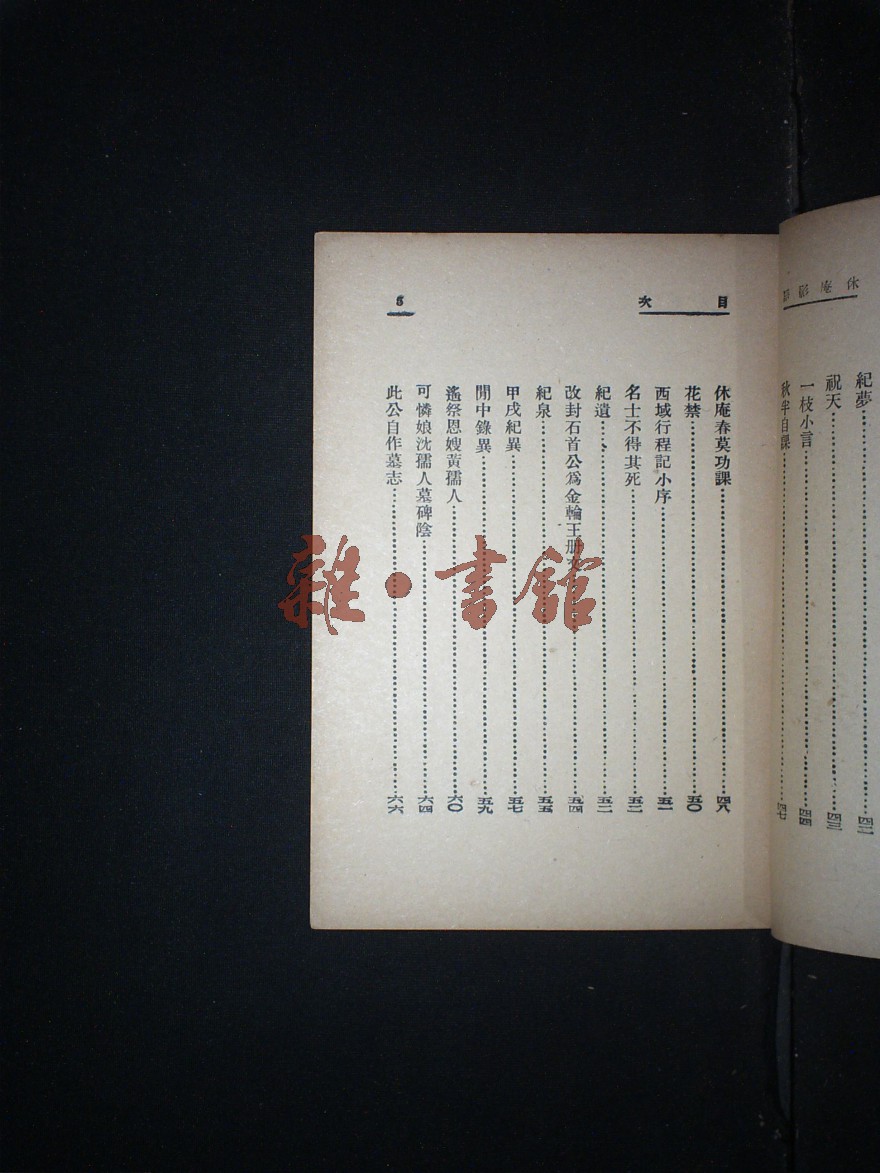 休庵影
紀夢……四二
祝天……四三
一枝小言……四四
秋半自課……四七
目次
5
休庵春莫功課……四八
花禁……五〇
西域行程記小序……五一
名士不得其死……五二
紀遺……五二
改封石首公爲金輪王册……五四
紀泉……五五
甲戌紀異……五七
閒中錄異……五九
遙祭恩嫂黃孺人……六〇
可憐娘沈孺人墓碑陰……六四
此公自作墓志……六六
雜·書館